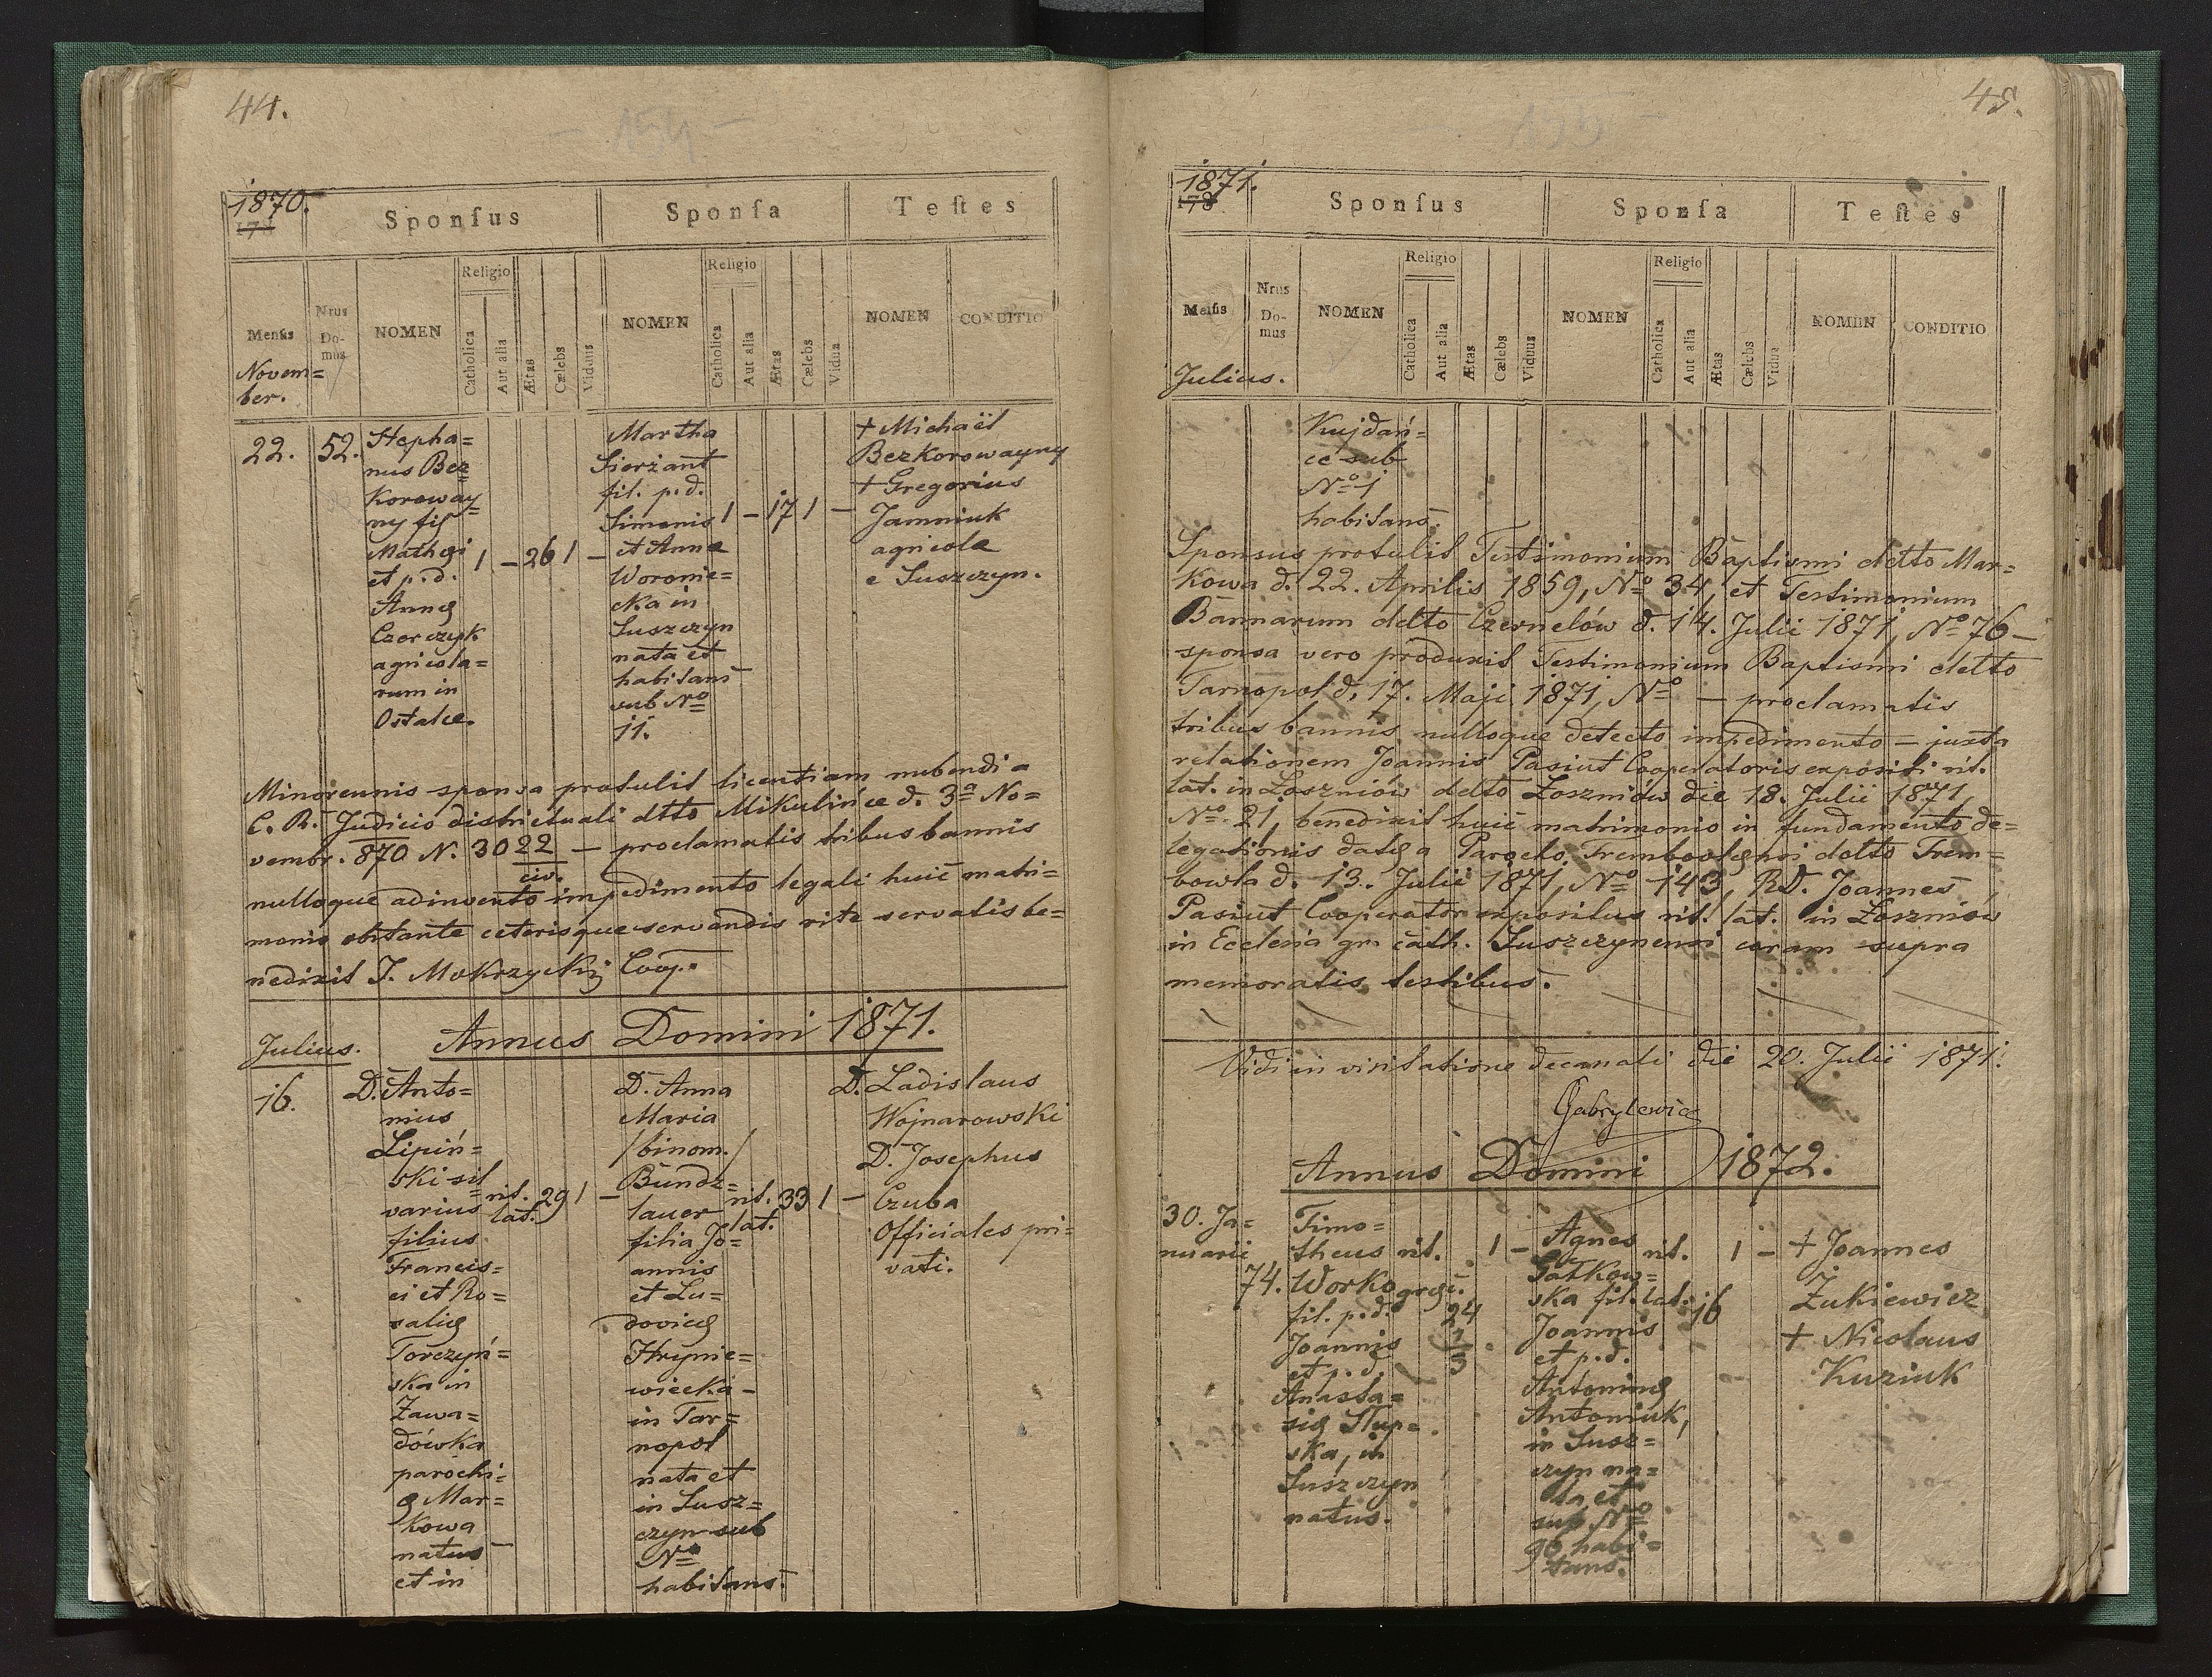 44.
- 154 -
1870.
178
Sponſus
Sponſa
Teſtes
Menſis
Nrus Domus
NOMEN
Religio
Catholica
Aut alia
Ætas
Cælebs
Viduus
NOMEN
Religio
Catholica
Aut alia
Ætas
Cælebs
Vidua
NOMEN
CONDITIO
Novem=
ber.
22.
52.
Stepha=
nus Bez
Koroway=
ny fil
Mathęi
et p.d.
Annę
Czorczyk
agricola=
rum in
Ostalce.
1 - 26 1 -
Martha
Sierżant
fil. p.d.
Simonis
et Anna
Woronie=
cka in
Suszczyn
nata et
habitans
sub No
11.
1 - 17 1 -
+ Michaël
Bezkorowayny
+ Gregorius
Jamniuk
agricolæ
e Suszczyn.
Minorennis sponsa protulit licentiam nubendi a
C. R. Judicio districtuali dtto Mikulińce d. 3a No=
vembr. 870 N. 3022 — proclamatis tribus bannis
civ.
nulloque adinvento impedimento legali huic matri=
monio obstante ceterisque servandis rite servatis be=
nedixit J. Mokrzycki Coop.
Annus Domini 1871.
Julius.
16.
D. Anto=
nius
Lipiń=
ski sil
varius
filius
Francis=
ci et Ro=
salię
Torczyń=
ska in
Zawa=
dówka
parochi=
ę Mar=
kowa
natus
et in
rit.
lat.
29 1 -
D. Anna
Maria
/binom./
Bundz=
lauer
filia Jo=
annis
et Lu=
dovicę
Hrynie=
wiecka -
in Tar=
nopol
nata et
in Susz=
czyn sub
No
habitans.
rit.
lat.
33 1 -
D. Ladislaus
Wojnarowski
D. Josephus
Czuba
Officiales pri=
vati.
45.
- 155 -
1871.
178
Sponſus
Sponſa
Teſtes
Menſis
Nrus Domus
NOMEN
Religio
Catholica
Aut alia
Ætas
Cælebs
Viduus
NOMEN
Religio
Catholica
Aut alia
Ætas
Cælebs
Vidua
NOMEN
CONDITIO
Julius.
Kujdań=
ce sub
No 1
habitans.
Sponsus protulit Testimonium Baptismi dtto Mar=
kowa d. 22. Aprilis 1859, No 34, et Testimonium
Bannarum dtto Czernelów d. 14. Julii 1871, No 76 —
sponsa vero produxit Testimonium Baptismi dtto
Tarnopol d. 17. Maji 1871, No — proclamatis
tribus bannis nulloque detecto impedimento — juxta
relationem Joannis Pasiut Cooperatoris expositi rit.
lat. in Łoszniów dtto Łoszniów die 18. Julii 1871,
No. 21, benedixit huic matrimonio in fundamento de=
legationis datę a Parocho Trembovlensi dtto Trem=
bowla d. 13. Julii 1871, No 143, RD. Joannes
Pasiut Cooperator expositus rit. lat. in Łoszniów
in Ecclesia gr. cath. Suszczynensi coram supra
memoratis testibus.
Vidi in visitatione decanali die 20. Julii 1871.
Gabrylewicz
Annus Domini 1872.
30. Ja=
nuarii
74.
Timo=
theus
Worko
fil. p.d.
Joannis
et p.d.
Anasta=
się Słup=
ska, in
Suszczyn
natus.
rit.
gręci.
1 -
24
Agnes
Satkow=
ska fil.
Joannis
et p.d.
Antoninę
Antoniuk,
in Susz=
czyn na=
ta et
sub No
96 habi=
tans.
rit.
lat.
1 -
16
+ Joannes
Żukiewicz
+ Nicolaus
Kuziuk